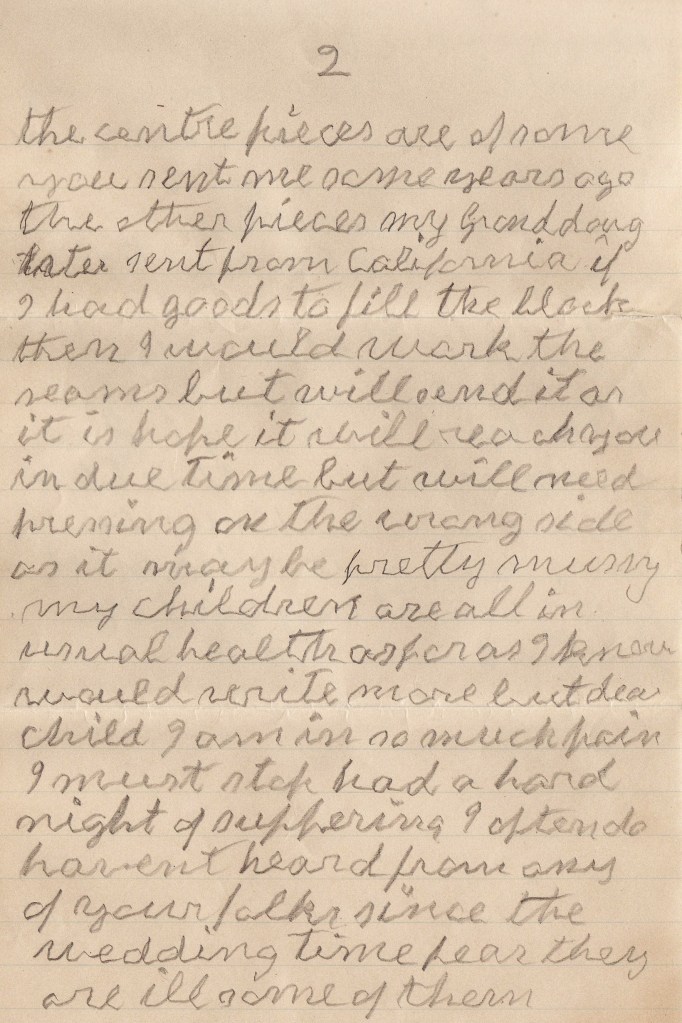 2
the centre pieces are of some
you sent me some years ago
the other pieces my Granddaug
hter sent from California if
I had goods to fill the block
then I would work the
seams but will send it as
it is hope it will reach you
in due time but will need
pressing on the wrong side
as it may be pretty mussy
my children are all in
usual health as far as I know
would write more but dear
child I am in so much pain
I must stop had a hard
night of suffering I often do
havent heard from any
of your folks since the
wedding time fear they
are ill some of them